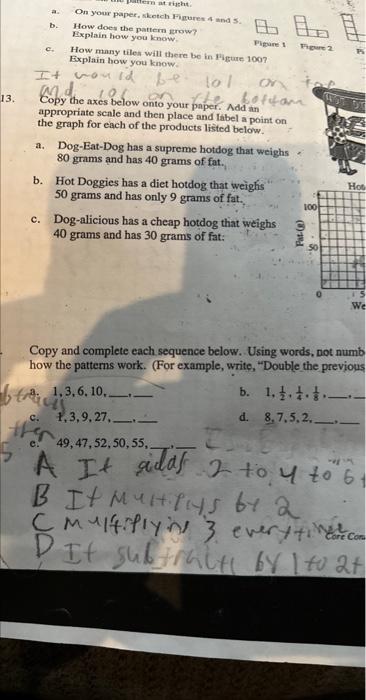 pattern at right.
a. On your paper, sketch Figures 4 and 5.
b. How does the pattern grow?
Explain how you know.
Figure 1 Figure 2
c. How many tiles will there be in Figure 100?
Explain how you know.
It would be 101 on top
and 101 on the bottom
13. Copy the axes below onto your paper. Add an
appropriate scale and then place and label a point on
the graph for each of the products listed below.
a. Dog-Eat-Dog has a supreme hotdog that weighs
80 grams and has 40 grams of fat.
b. Hot Doggies has a diet hotdog that weighs
50 grams and has only 9 grams of fat.
c. Dog-alicious has a cheap hotdog that weighs
40 grams and has 30 grams of fat.
Hot
100
Fat (g)
50
0 5
We
Copy and complete each sequence below. Using words, not numb
how the patterns work. (For example, write, “Double the previous
a. 1, 3, 6, 10, __, __
b. 1, 1/2, 1/4, 1/8, __, __
c. 1, 3, 9, 27, __, __
d. 8, 7, 5, 2, __, __
then
e. 49, 47, 52, 50, 55, __, __
5
A It adds 2 to 4 to 6
B It Multiplys by 2
C multiplying 3 everytime
Core Con
D It subtracts by 1 to 2